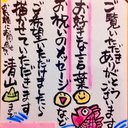 ご覧いただき
ありがとうございます
お好きな言葉
お祝いのメッセージなど
ご希望いただけましたら
描かせていただきます
清山